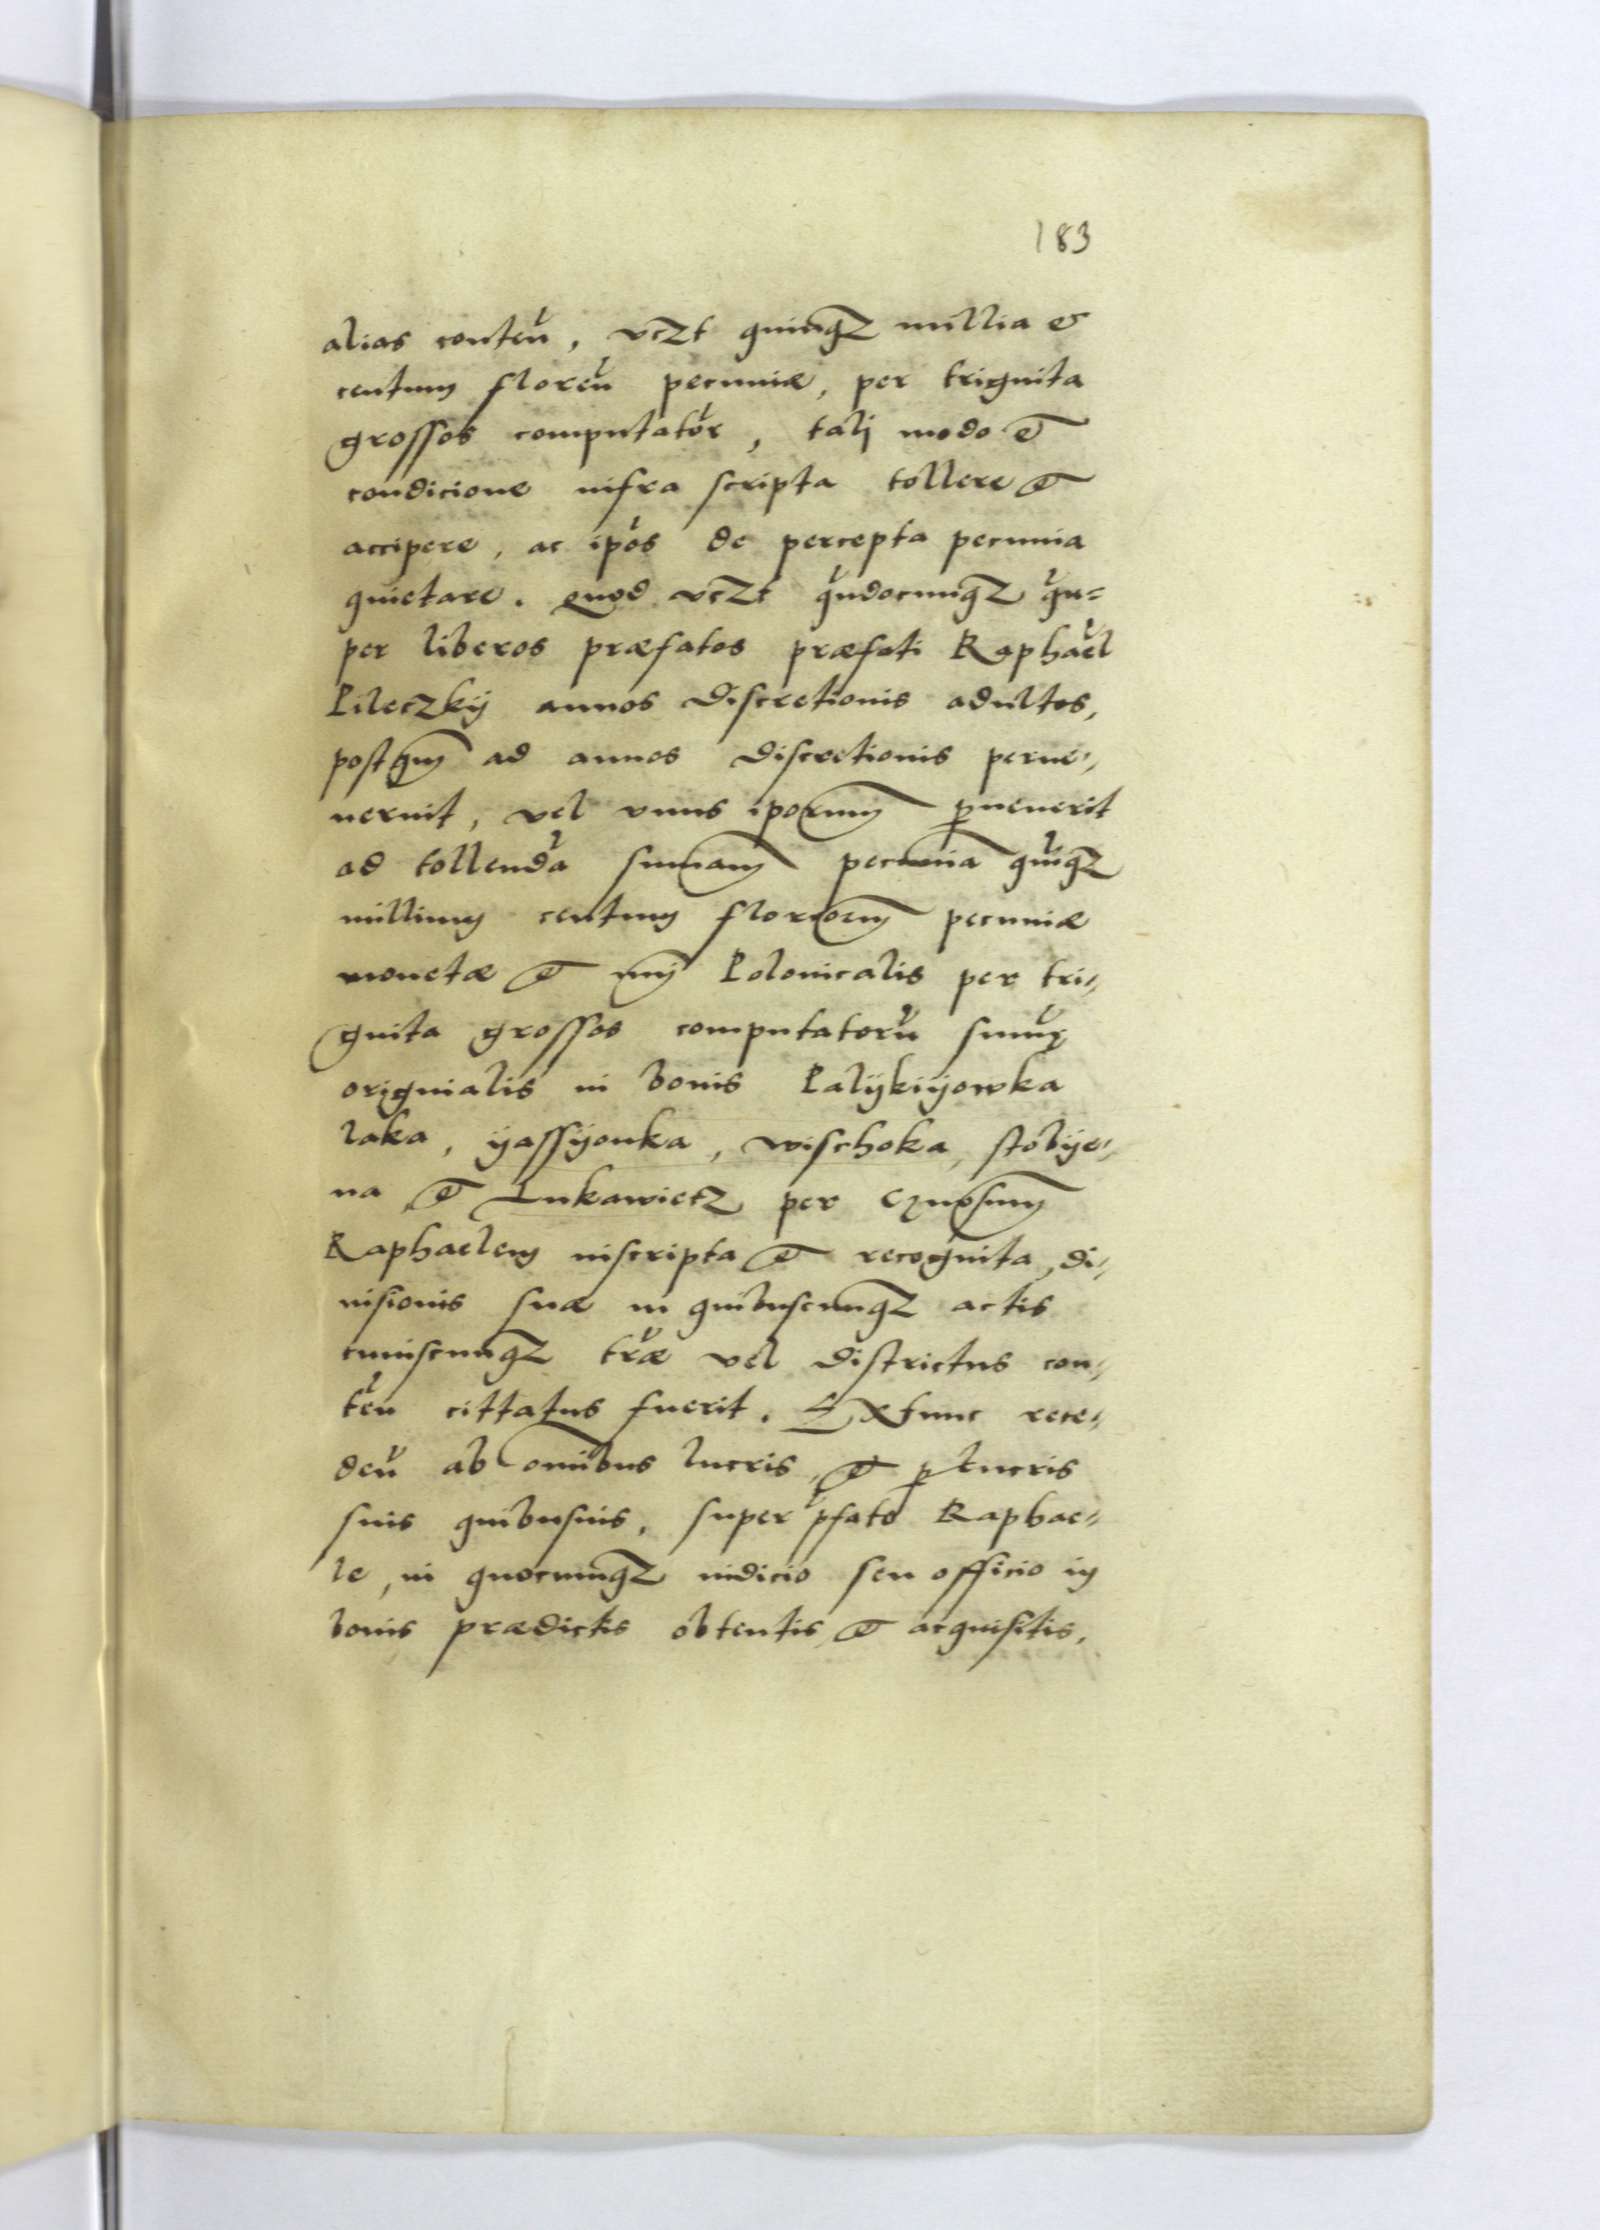 183
alias conteñ, vcȥt quinqȥ millia &
centum floreñ pecuniæ, per triginta
grossos computator̃, talj modo et
condicione infra scripta tollere et
accipere, ac ip̃os de percepta pecunia
quietare. Quod vcȥt qũdocunqȥ qũ=
per liberos præfatos præfati Raphael̃
Pileczkÿ annos discretionis adultos,
postqm̃ ad annos discretionis perue„
nerint, vel vnus ip̃orum ꝑuenerit
ad tollendã sum̃am pecuniã quĩqȥ
millium centum florenorum pecuniæ
monetæ et nu̅i Polonicalis per tri„
ginta grossos computatorũ sum̃ę
originalis in bonis Palÿkÿowka
laka, ÿassÿonka, wischoka, stobÿe„
na et Lukawiecz per Gn̄osum
Raphaelem inscripta et recognita, di„
uisionis suæ in quibuscunqȥ actis
cuiuscunqȥ tr̃æ vel districtus con„
teñ cittatus fuerit. Extunc rece„
deñ ab om̃ibus lucris, et ꝑlucris
suis quibusuis, super p̃fato Raphae„
le, in quocunqȥ iudicio seu officio in
bonis prædictis obtentis et acquisitis,